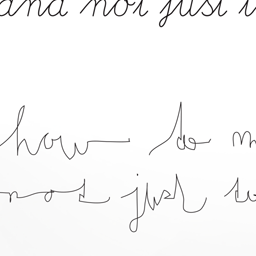 and not just i
how to m
not just to